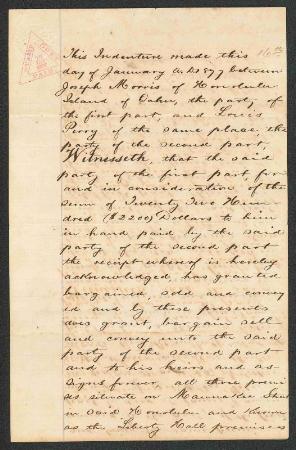 This Indenture made this 16th
day of January A.D. 1877 between
Joseph Morris of Honolulu
Island of Oahu, the party of
the first part, and Louis
Perry of the same place, the
party of the second part,
Witnesseth, that the said
party of the first part, for
and in consideration of the
sum of Twenty Two Hun
dred ($2200) Dollars to him
in hand paid by the said
party of the second part
the receipt whereof is hereby
acknowledged, has granted
bargained, sold and convey
ed and by these presents
does grant, bargain sell
and convey unto the said
party of the second part
and to his heirs and as
signs forever, all those premi
ses situate on Maunakea Street
in said Honolulu and known
as the Liberty Hall premises